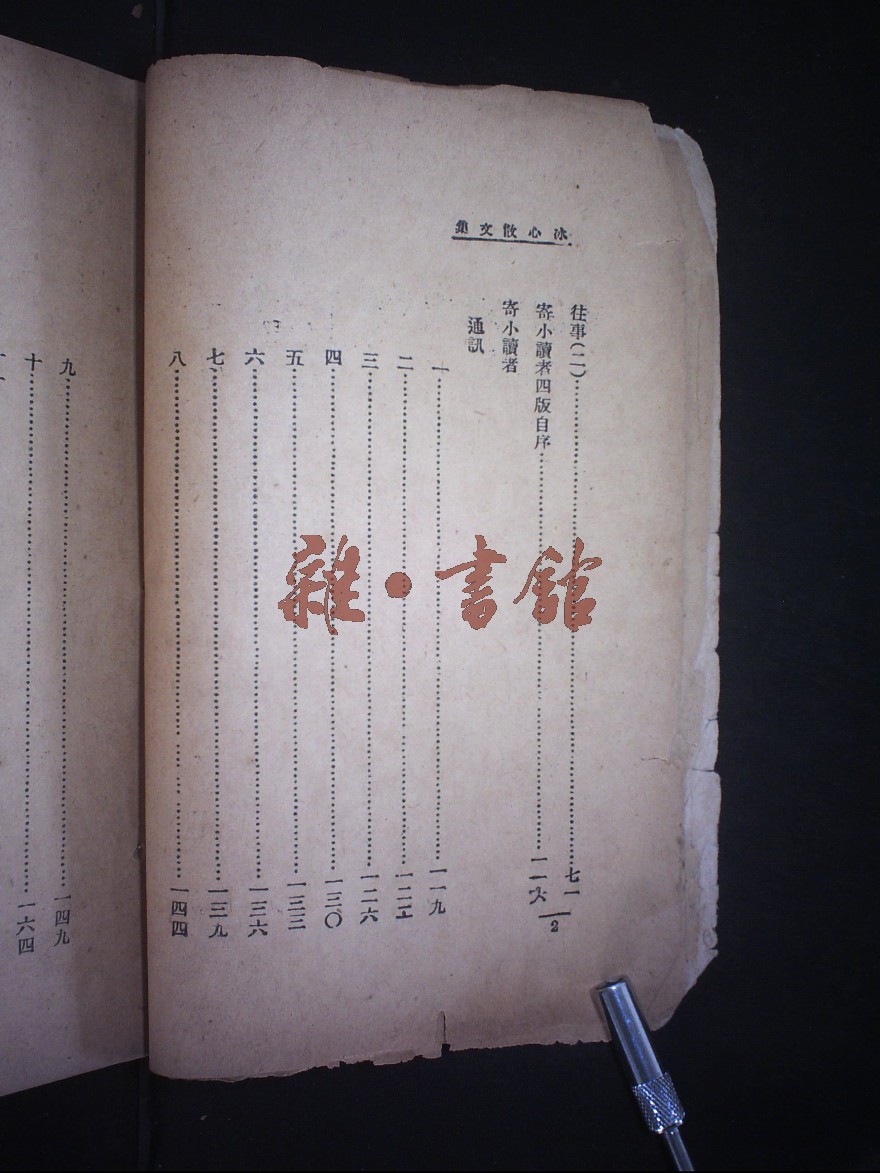 冰心散文集
往事(二)……七一
寄小讀者四版自序……一一六
寄小讀者
通訊
一……一一九
二……一二二
三……一二六
四……一三〇
五……一三三
六……一三六
七……一三九
八……一四四
2
九……一四九
十……一六四
雜·書館